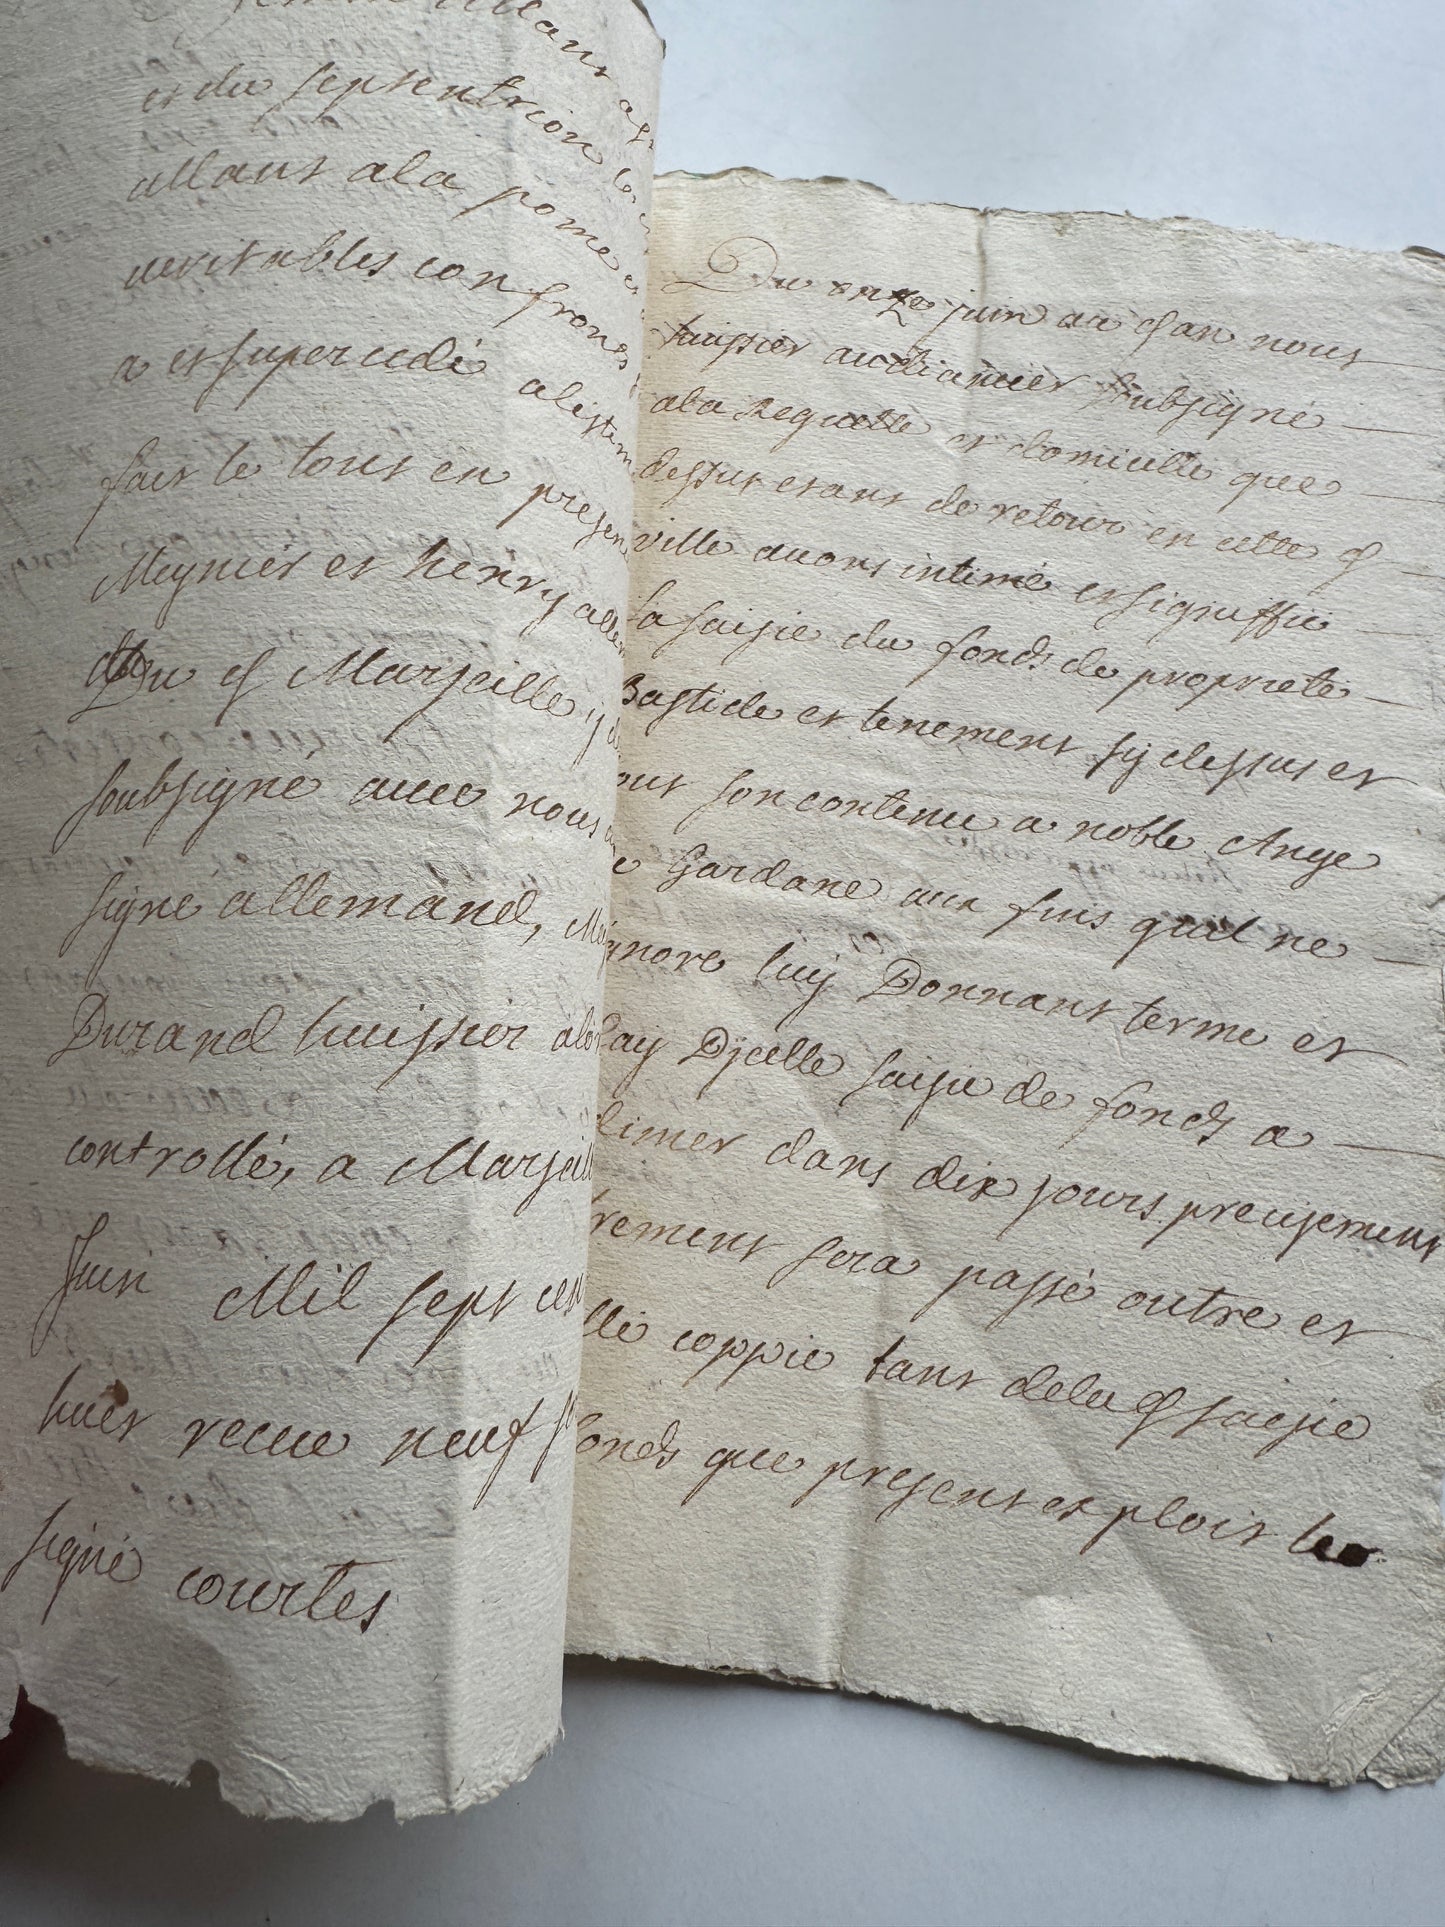 et du septentrion le
allant a la pome et
veritables confronts
a et supercedé a lestim
fait le tout en presen
Meynier et henry allem
du d Marseille y
soubsigné avec nous
signé allemand, Me
Durand huissier
controllé, a Marseill
Juin Mil sept cen
huit recue neuf
signé courtes
Du onze juin au d an nous
huissier audiancier soubsigné
a la Requette et domicille que
dessus etant de retour en cette d
ville avons intimé et signiffié
la saisie du fonds de proprieté
Bastide et tenement sy dessus et
out son contenu a noble Ange
e Gardane aux fins quil ne
gnore luy Donnant terme et
lay Dycelle saisie de fonds a
dimer dans dix jours precisement
trement sera passé outre et
llé coppie tant de la d saisie
fonds que present exploit le